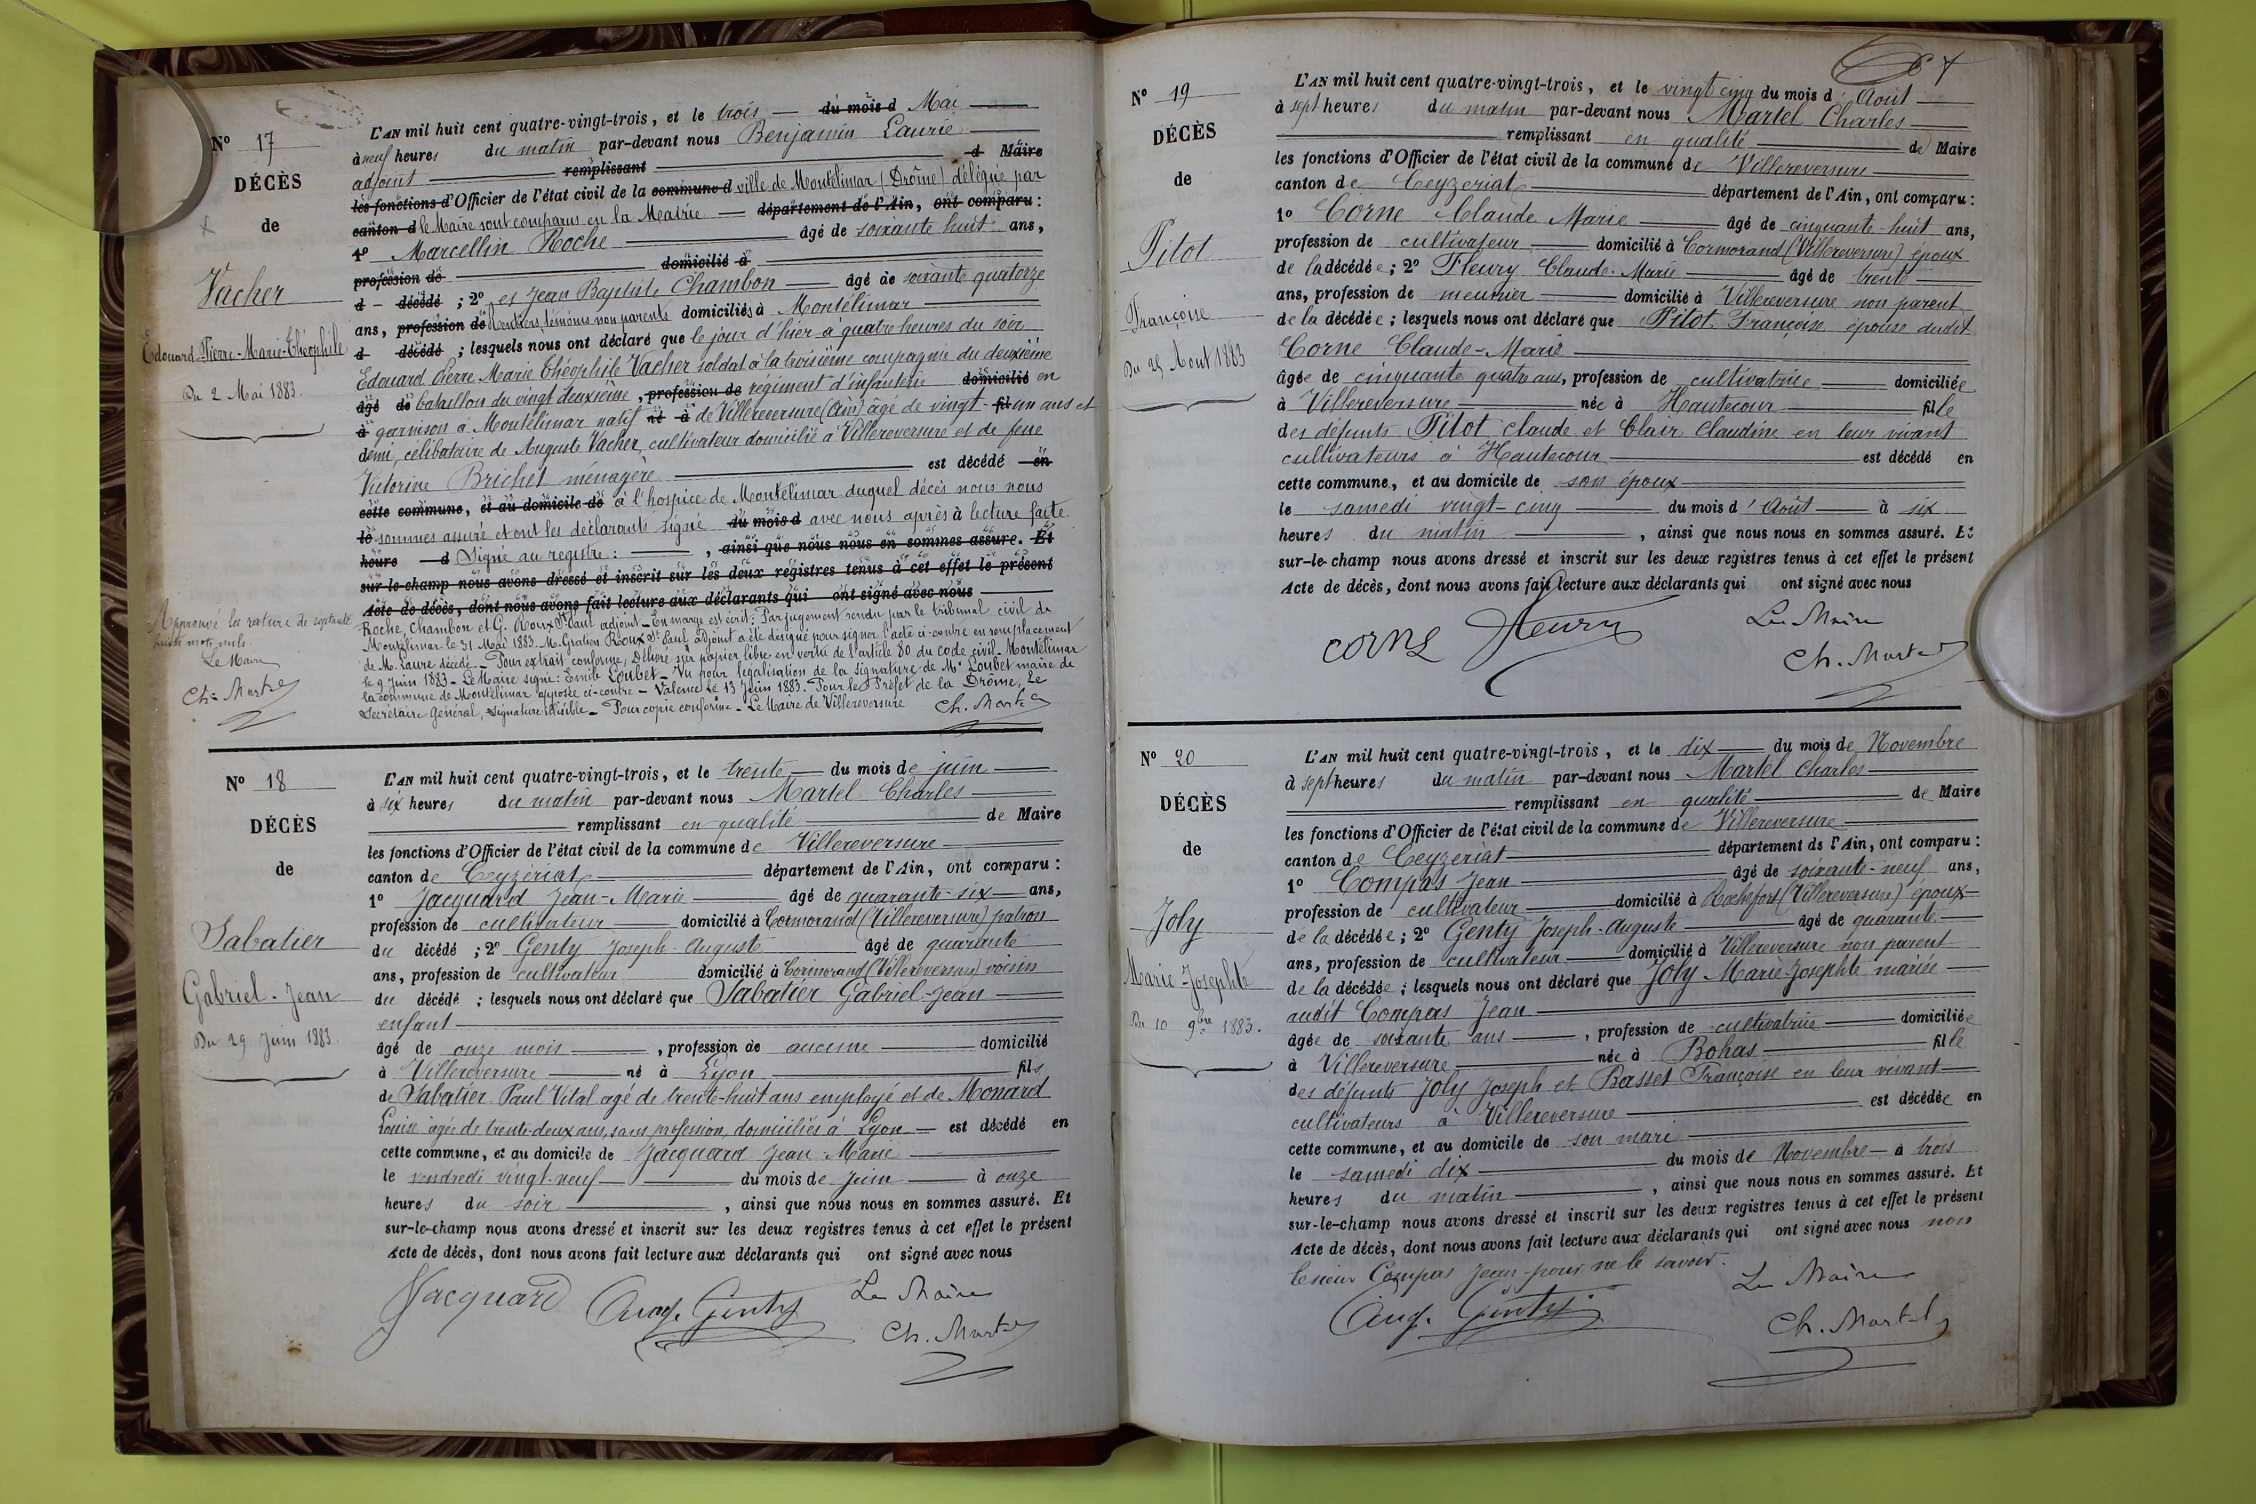 Nº 17
DÉCÈS
de
Vacher
Édouard-Pierre-Marie-Théophile
Du 2 Mai 1883.
L'AN mil huit cent quatre-vingt-trois, et le trois du mois d Mai
à neuf heures du matin par-devant nous Benjamin Laurie
adjoint remplissant d Maire
les fonctions d'Officier de l'état civil de la commune d ville de Montélimar (Drôme) délégué par
canton d le Maire sont comparus en la Mairie département de l'Ain, ont comparu :
1º Marcellin Roche âgé de soixante huit ans,
profession de domicilié à
d décédé ; 2º et Jean Baptiste Chambon âgé de soixante quatorze
ans, profession de Rentiers, témoins non parents domiciliés à Montélimar
d décédé ; lesquels nous ont déclaré que le jour d'hier à quatre heures du soir
Edouard Pierre Marie Théophile Vacher soldat à la troisième compagnie du deuxième
âgé de bataillon du vingt deuxième, profession de régiment d'infanterie domicilié en
à garnison à Montélimar natif né à de Villereversure (Ain) âgé de vingt fil un ans et
demi, célibataire de Auguste Vacher, cultivateur domicilié à Villereversure et de feue
Victorine Brichet ménagère est décédé en
cette commune, et au domicile de à l'hospice de Montélimar duquel décès nous nous
le sommes assuré et ont les déclarants signé du mois d avec nous après à lecture faite
heure d Signé au registre : , ainsi que nous nous en sommes assuré. Et
sur-le-champ nous avons dressé et inscrit sur les deux registres tenus à cet effet le présent
Acte de décès, dont nous avons fait lecture aux déclarants qui ont signé avec nous
Roche, Chambon et G. Roux St Paul adjoint - En marge est écrit : Par jugement rendu par le tribunal civil de
Montélimar le 31 Mai 1883. M. Gratien Roux St Paul adjoint a été désigné pour signer l'acte ci-contre en remplacement
de M. Laure décédé - Pour extrait conforme, Délivré sur papier libre en vertu de l'article 80 du code civil - Montélimar
le 9 Juin 1883 - Le Maire signé : Emile Loubet - Vu pour légalisation de la signature de Mr Loubet maire de
la commune de Montélimar apposée ci-contre - Valence le 13 Juin 1883. Pour le Préfet de la Drôme, Le
Secrétaire Général, signature illisible - Pour copie conforme - Le Maire de Villereversure Ch. Martel
Approuvé la rature de septante
mots nuls.
Le Maire
Ch. Martel
Nº 18
DÉCÈS
de
Sabatier
Gabriel-Jean
Du 29 Juin 1883.
L'AN mil huit cent quatre-vingt-trois, et le trente du mois de juin
à six heures du matin par-devant nous Martel Charles
remplissant en qualité de Maire
les fonctions d'Officier de l'état civil de la commune de Villereversure
canton de Ceyzériat département de l'Ain, ont comparu :
1º Jacquard Jean-Marie âgé de quarante-six ans,
profession de cultivateur domicilié à Cormorand (Villereversure) patron
du décédé ; 2º Genty Joseph-Auguste âgé de quarante
ans, profession de cultivateur domicilié à Cormorand (Villereversure) voisin
du décédé ; lesquels nous ont déclaré que Sabatier Gabriel-Jean
enfant
âgé de onze mois, profession de aucune domicilié
à Villereversure né à Lyon fils
de Sabatier Paul Vital agé de trente-huit ans employé et de Monard
Louise agée de trente-deux ans, sans profession, domiciliés à Lyon est décédé en
cette commune, et au domicile de Jacquard Jean-Marie
le vendredi vingt-neuf du mois de Juin à onze
heures du soir, ainsi que nous nous en sommes assuré. Et
sur-le-champ nous avons dressé et inscrit sur les deux registres tenus à cet effet le présent
Acte de décès, dont nous avons fait lecture aux déclarants qui ont signé avec nous
Jacquard Aug. Genty Le Maire
Ch. Martel
Nº 19
DÉCÈS
de
Pitot
Françoise
Du 25 Aout 1883
L'AN mil huit cent quatre-vingt-trois, et le vingt cinq du mois d'Août
à sept heures du matin par-devant nous Martel Charles
remplissant en qualité de Maire
les fonctions d'Officier de l'état civil de la commune de Villereversure
canton de Ceyzeriat département de l'Ain, ont comparu :
1º Corne Claude Marie âgé de cinquante-huit ans,
profession de cultivateur domicilié à Cormorand (Villereversure) époux
de la décédée ; 2º Fleury Claude-Marie âgé de trente
ans, profession de meunier domicilié à Villereversure non parent
de la décédée ; lesquels nous ont déclaré que Pitot Françoise épouse dudit
Corne Claude-Marie
âgée de cinquante quatre ans, profession de cultivatrice domiciliée
à Villereversure née à Hautecour fille
des défunts Pitot Claude et Clair Claudine en leur vivant
cultivateurs à Hautecour est décédé en
cette commune, et au domicile de son époux
le samedi vingt-cinq du mois d'Août à six
heures du matin, ainsi que nous nous en sommes assuré. Et
sur-le-champ nous avons dressé et inscrit sur les deux registres tenus à cet effet le présent
Acte de décès, dont nous avons fait lecture aux déclarants qui ont signé avec nous
CORNE Fleury Le Maire
Ch. Martel
Nº 20
DÉCÈS
de
Joly
Marie-Josephte
Du 10 9bre 1883.
L'AN mil huit cent quatre-vingt-trois, et le dix du mois de Novembre
à sept heures du matin par-devant nous Martel Charles
remplissant en qualité de Maire
les fonctions d'Officier de l'état civil de la commune de Villereversure
canton de Ceyzeriat département de l'Ain, ont comparu :
1º Compas Jean âgé de soixante-neuf ans,
profession de cultivateur domicilié à Rochefort (Villereversure) époux
de la décédée ; 2º Genty Joseph-Auguste âgé de quarante
ans, profession de cultivateur domicilié à Villereversure non parent
de la décédée ; lesquels nous ont déclaré que Joly Marie-Josephte mariée
audit Compas Jean
âgée de soixante ans, profession de cultivatrice domiciliée
à Villereversure née à Bohas fille
des défunts Joly Joseph et Basset Françoise en leur vivant
cultivateurs à Villereversure est décédée en
cette commune, et au domicile de son mari
le samedi dix du mois de Novembre à trois
heures du matin, ainsi que nous nous en sommes assuré. Et
sur-le-champ nous avons dressé et inscrit sur les deux registres tenus à cet effet le présent
Acte de décès, dont nous avons fait lecture aux déclarants qui ont signé avec nous non
le sieur Compas Jean pour ne le savoir.
Aug. Genty Le Maire
Ch. Martel